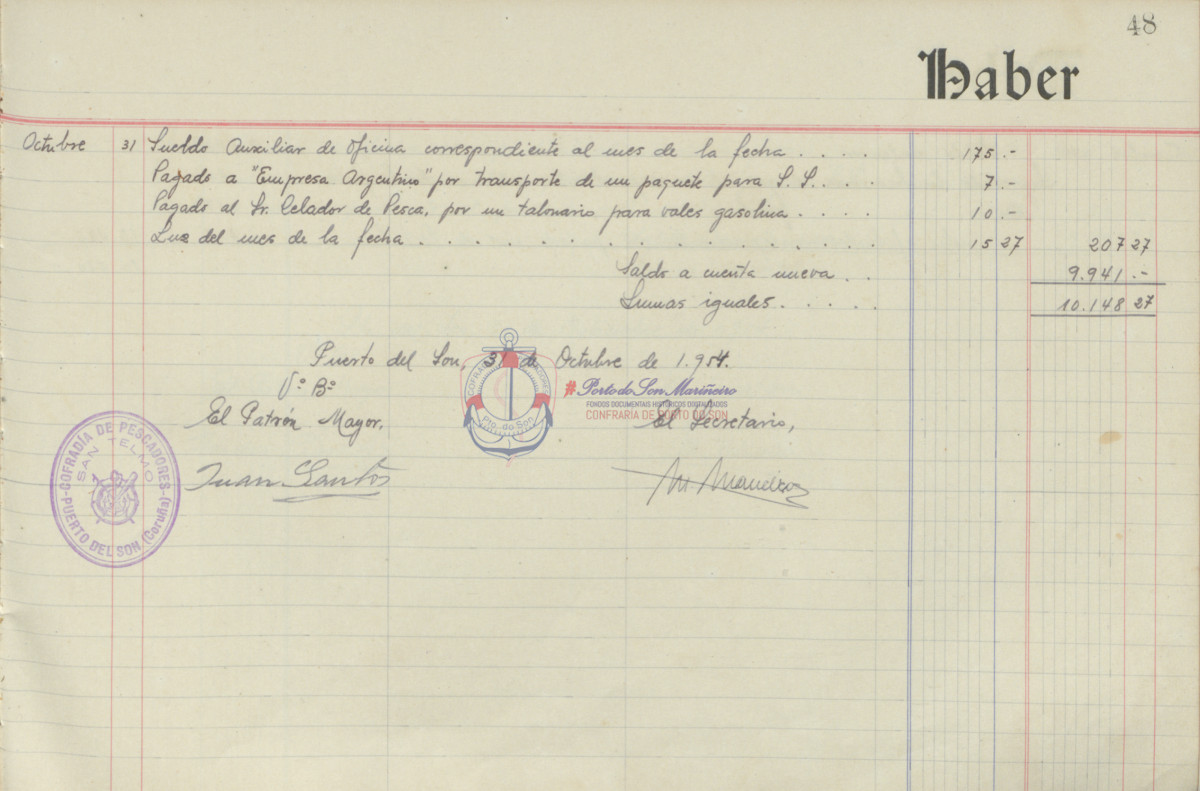 48
Haber
Octubre 31 Sueldo Auxiliar de Oficina correspondiente al mes de la fecha . . . . 175.-
Pagado a "Empresa Argentino" por transporte de un paquete para S. S. . . . 7.-
Pagado al Sr. Celador de Pesca, por un talonario para vales gasolina . . . . 10.-
Luz del mes de la fecha . . . . . . . . . . . . . . . . 15 27 207 27
Saldo a cuenta nueva . . 9.941.-
Sumas iguales . . . . . 10.148 27
Puerto del Son, 31 de Octubre de 1.954.
Vº Bº
El Patrón Mayor,
El Secretario,
Juan Santos
COFRADÍA DE PESCADORES
SAN TELMO
PUERTO DEL SON (Coruña)
#Porto do Son Mariñeiro
FONDOS DOCUMENTAIS HISTÓRICOS DIXITALIZADOS
CONFRARÍA DE PORTO DO SON
Pto. do Son